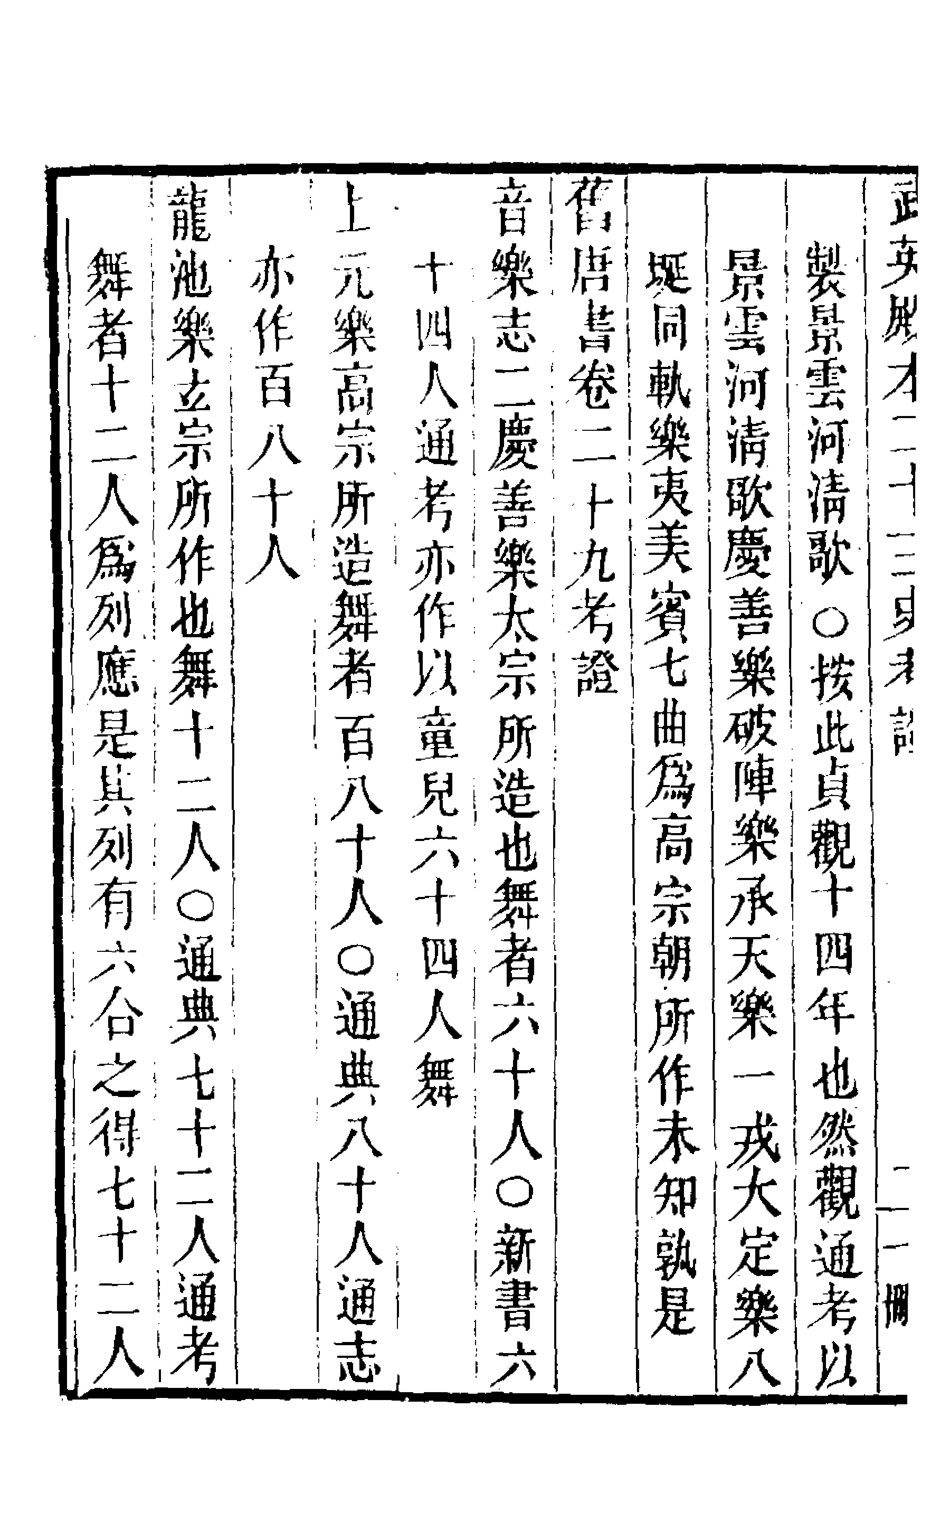 武英殿本二十三史考證
製景雲河清歌○按此貞觀十四年也然觀通考以
景雲河清歌慶善樂破陣樂承天樂一戎大定樂八
埏同軌樂夷美賓七曲爲高宗朝所作未知孰是
舊唐書卷二十九考證
音樂志二慶善樂太宗所造也舞者六十人○新書六
十四人通考亦作以童兒六十四人舞
上元樂高宗所造舞者百八十人○通典八十人通志
亦作百八十人
龍池樂玄宗所作也舞十二人○通典七十二人通考
舞者十二人爲列應是其列有六合之得七十二人